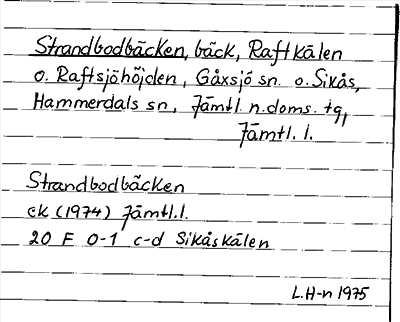 Strandbodbäcken, bäck, Raftkälen
o. Raftsjöhöjden, Gåxsjö sn. o. Sikås,
Hammerdals sn, Jämtl. n. doms. tg,
Jämtl. l.
Strandbodbäcken
ek (1974) Jämtl. l.
20 F 0-1 c-d Sikåskälen
L.H-n 1975